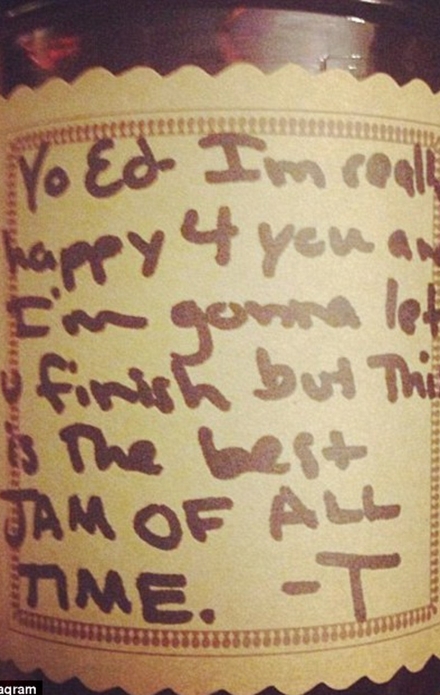 Yo Ed I'm reall
happy 4 you an
I'm gonna let
u finish but This
is The best
JAM OF ALL
TIME. -T
agram